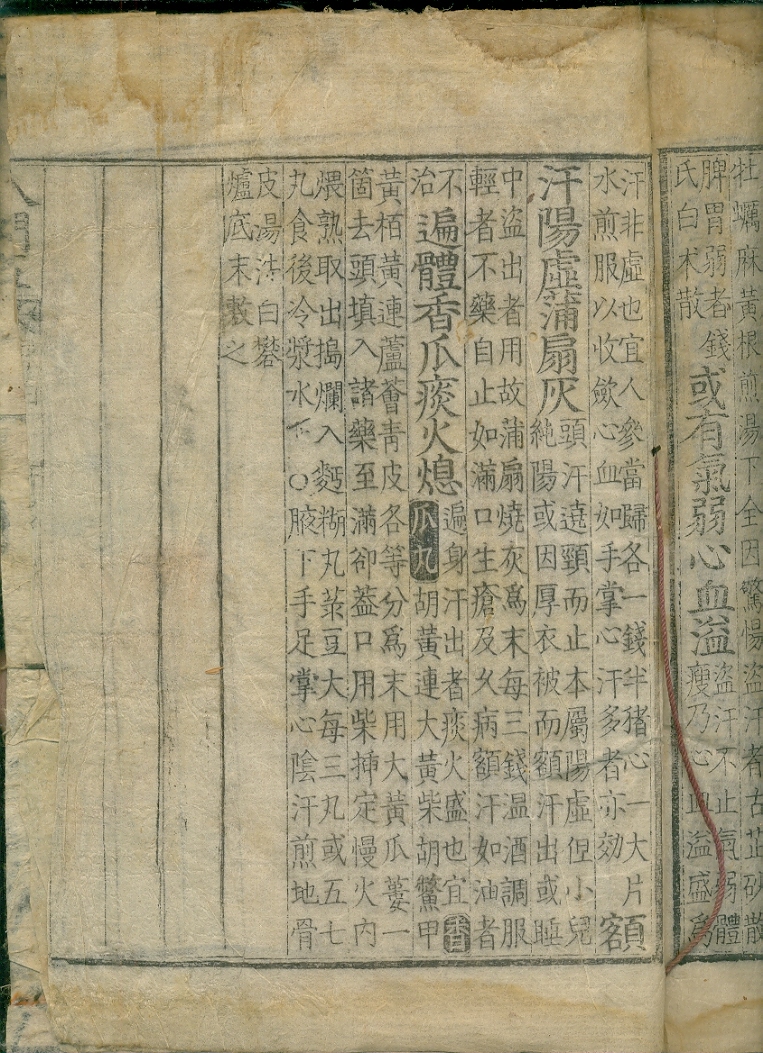 牡蠣麻黃根煎湯下全因驚惕盜汗者古芷砂散
脾胃弱者錢
氏白朮散
或有氣弱心血溢
盜汗不止氣弱體
瘦乃心血溢盛爲
汗非虛也宜人參當歸各一錢半猪心一大片
水煎服以收斂心血如手掌心汗多者亦効
額
汗陽虛蒲扇灰
頭汗遶頸而止本屬陽虛但小兒
純陽或因厚衣被而額汗出或睡
中盜出者用故蒲扇燒灰爲末每三錢温酒調服
輕者不藥自止如滿口生瘡及久病額汗如油者
不
治
遍體香瓜痰火熄
遍身汗出者痰火盛也宜香
瓜丸胡黃連大黃柴胡鱉甲
黃栢黃連蘆薈靑皮各等分爲末用大黃瓜蔞一
箇去頭填入諸藥至滿卻葢口用柴揷定慢火內
煨熟取出搗爛入麪糊丸菉豆大每三丸或五七
丸食後冷漿水下○腋下手足掌心陰汗煎地骨
皮湯洗白礬
爐底末敷之